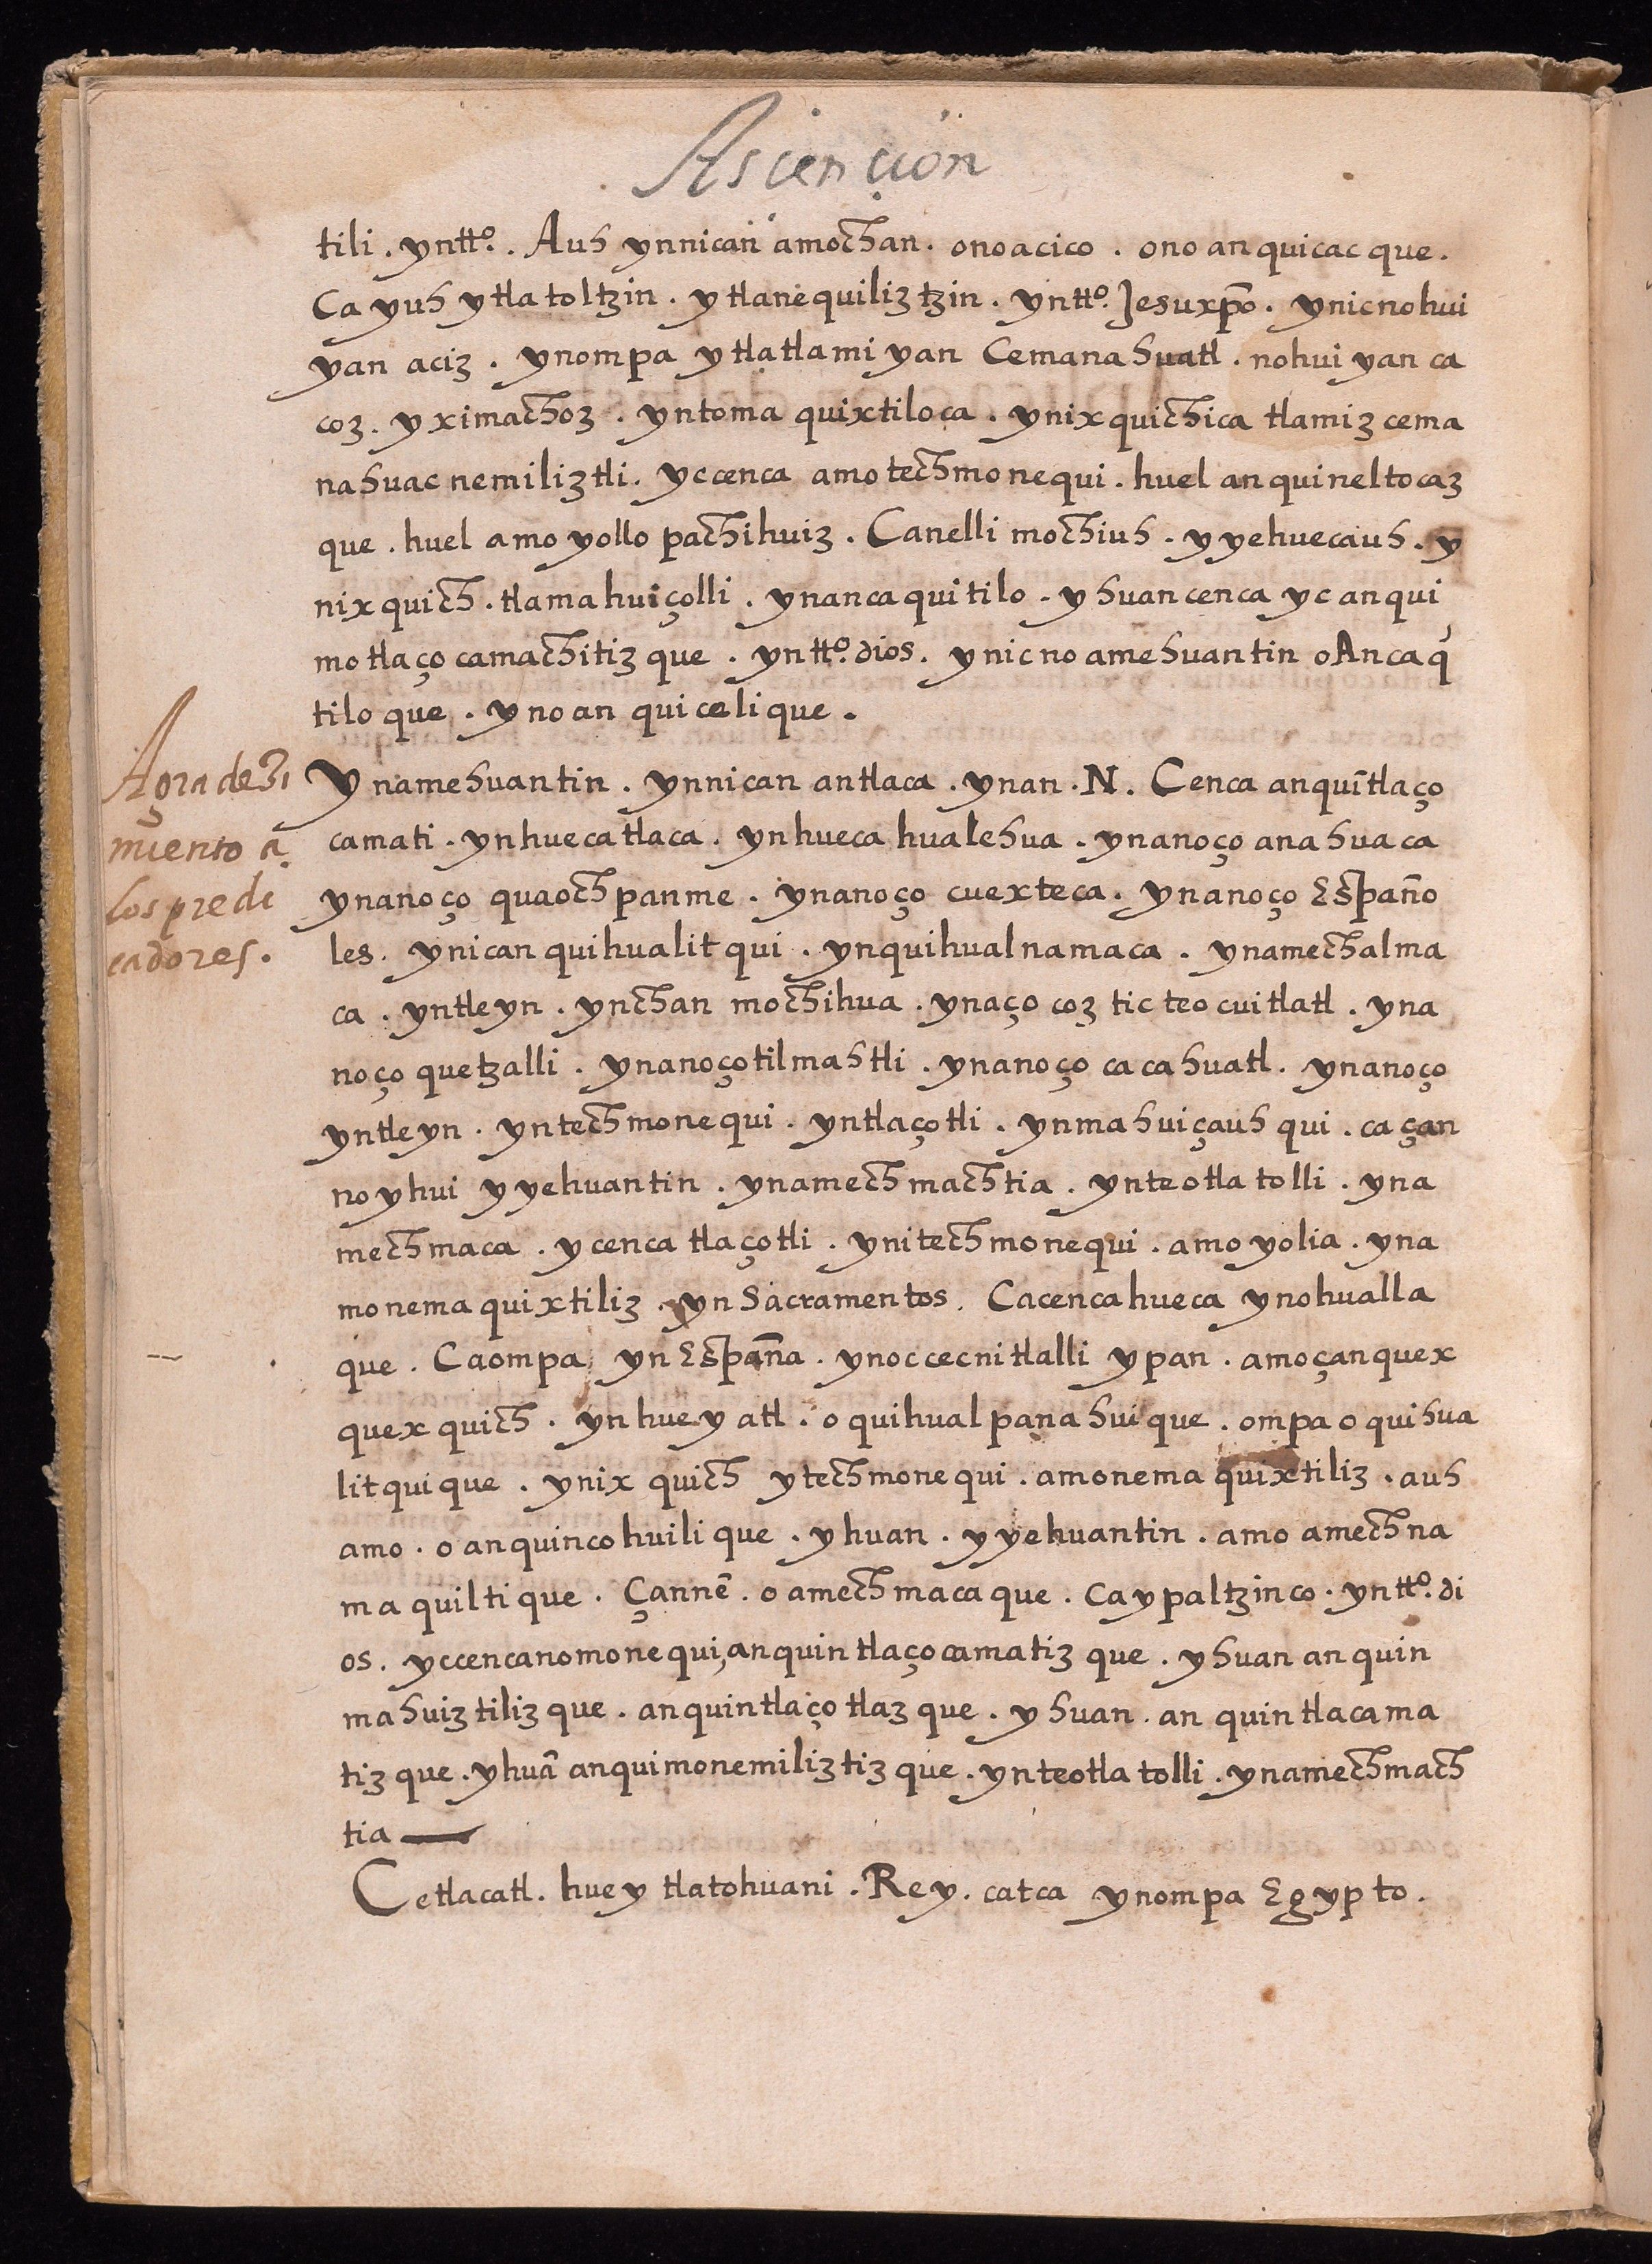 Ascençion
tili . yntto. . Auh ynnican amochan . onoacico . ono anquicac que .
Ca yuh ytlatoltzin . ytlanequiliztzin . yntto. Jesuxpo . ynicnohui
yan aciz . ynompa ytlatlamiyan Cemanahuatl . nohuiyan ca
coz . yximachoz . yntoma quixtiloca . ynixquichica tlamiz cema
nahuac nemiliztli . yccenca amotechmonequi . huel anquineltocaz
que . huel amoyollo pachihuiz . Canelli mochiuh . yyehuecauh . y
nixquich . tlamahuiçolli . ynancaquitilo . yhuan cenca yc anqui
motlaçocamachitiz que . yntto. dios . ynicno amehuantin oAncaq́
tiloque . yno anquicelique .
Agradezi
miento a
los predi
cadores .
Ynamehuantin . ynnican antlaca . ynan . N . Cenca anquītlaço
camati . ynhuecatlaca . ynhueca hualehua . ynanoço anahuaca
ynanoço quaochpanme . ynanoço cuexteca . ynanoço Españo
les . ynican quihualitqui . ynquihualnamaca . ynamechalma
ca . yntleyn . ynchan mochihua . ynaço coztic teocuitlatl . yna
noço quetzalli . ynanoçotilmahtli . ynanoço cacahuatl . ynanoço
yntleyn . yntechmonequi . yntlaçotli . ynmahuiçauhqui . caçan
noyhui yyehuantin . ynamechmachtia . ynteotlatolli . yna
mechmaca . ycenca tlaçotli . ynitechmonequi . amoyolia . yna
monemaquixtiliz . yn Sacramentos . Cacencahueca ynohualla
que . Caompa yn España . ynoccecnitlalli ypan . amoçanquex
quexquich . ynhueyatl . oquihualpanahuique . ompa oquihua
litquique . ynixquich ytechmonequi . amonemaquixtiliz . auh
amo . oanquincohuilique . yhuan . yyehuantin . amo amechna
maquiltique . Çannē . oamechmacaque . Caypaltzinco . yntto. di
os . yccencanomonequi, anquintlaçocamatizque . yhuan anquin
mahuiztilizque . anquintlaçotlazque . yhuan . anquintlacama
tizque . yhuā anquimonemiliztizque . ynteotlatolli . ynamechmach
tia —
Cetlacatl . huey tlatohuani . Rey . catca ynompa Egypto .